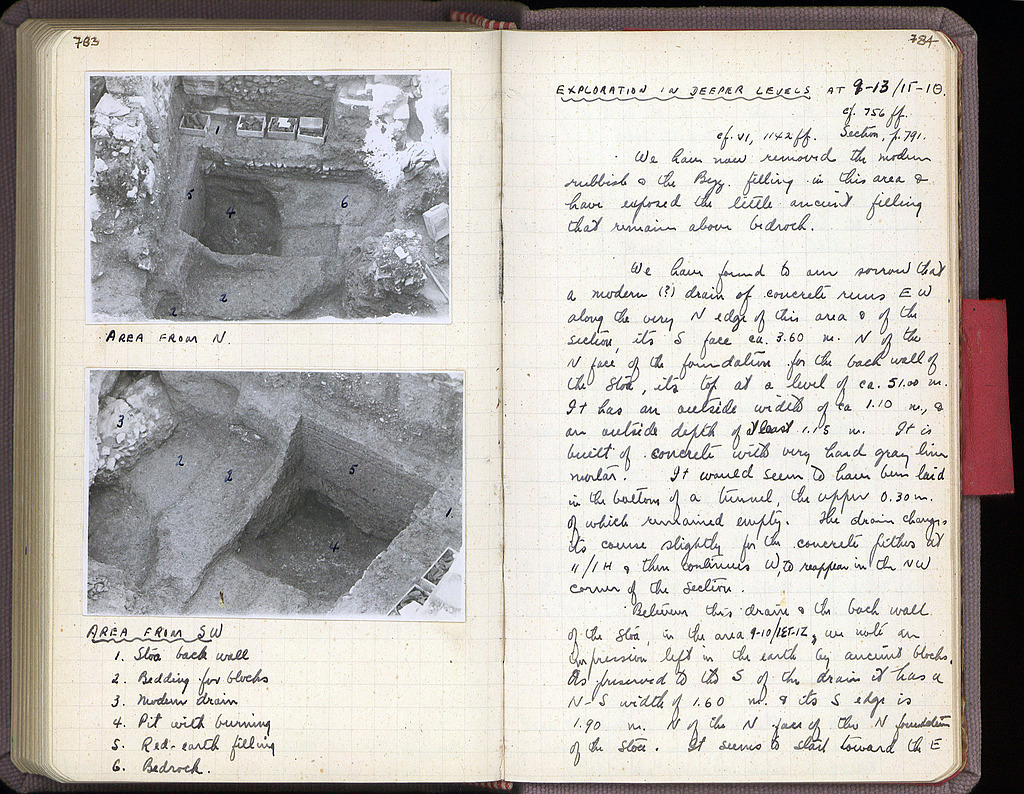 783
1
5
4
6
2
2
AREA FROM N.
3
2
2
5
4
1
AREA FROM SW
1. Stoa back wall
2. Bedding for blocks
3. Modern drain
4. Pit with burning
5. Red-earth filling
6. Bedrock.
784
EXPLORATION IN DEEPER LEVELS AT 9-13/15-18.
cf. 756 ff.
cf. VI, 1142 ff. Section, p. 791.
We have now removed the modern
rubbish & the Byz. filling in this area &
have exposed the little ancient filling
that remains above bedrock.
We have found to our sorrow that
a modern (?) drain of concrete runs E W
along the very N edge of this area & of the
section, its S face ca. 3.60 m. N of the
N face of the foundation for the back wall of
the Stoa, its top at a level of ca. 51.00 m.
It has an outside width of ca 1.10 m., &
an outside depth of at least 1.15 m. It is
built of concrete with very hard gray lime
mortar. It would seem to have been laid
in the bottom of a tunnel, the upper 0.30 m.
of which remained empty. The drain changes
its course slightly for the concrete pithos at
11/1H & then continues W, to reappear in the NW
corner of the section.
Between this drain & the back wall
of the Stoa, in the area 9-10/, we note an
impression left in the earth by ancient blocks.
As preserved to the S of the drain it has a
N-S width of 1.60 m. & its S edge is
1.90 m. N of the N face of the N foundation
of the Stoa. It seems to start toward the E